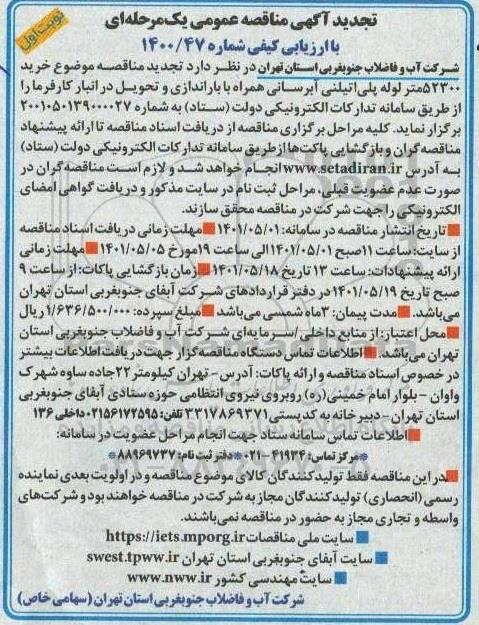 نوبت اول
تجدید آگهی مناقصه عمومی یک‌مرحله‌ای
با ارزیابی کیفی شماره ۱۴۰۰/۴۷
شرکت آب و فاضلاب جنوبغربی استان تهران در نظر دارد تجدید مناقصه موضوع خرید
۵۲۳۰۰متر لوله پلی اتیلنی آبرسانی همراه با باراندازی و تحویل در انبار کارفرما را
از طریق سامانه تدارکات الکترونیکی دولت (ستاد) به شماره ۲۰۰۱۰۵۰۱۳۹۰۰۰۰۲۷
برگزار نماید. کلیه مراحل برگزاری مناقصه از دریافت اسناد مناقصه تا ارائه پیشنهاد
مناقصه‌گران و بازگشایی پاکت‌ها ازطریق سامانه تدارکات الکترونیکی دولت (ستاد)
به آدرس www.setadiran.ir انجام خواهد شد و لازم است مناقصه‌گران در
صورت عدم عضویت قبلی، مراحل ثبت نام در سایت مذکور و دریافت گواهی امضای
الکترونیکی را جهت شرکت در مناقصه محقق سازند.
■ تاریخ انتشار مناقصه در سامانه: ۱۴۰۱/۰۵/۰۱ ■ مهلت زمانی دریافت اسناد مناقصه
از سایت: ساعت ۱۱صبح ۱۴۰۱/۰۵/۰۱الی ساعت ۱۹مورخ ۱۴۰۱/۰۵/۰۵ ■ مهلت زمانی
ارائه پیشنهادات: ساعت ۱۳ تاریخ ۱۴۰۱/۰۵/۱۸ ■ زمان بازگشایی پاکات: از ساعت ۹
صبح تاریخ ۱۴۰۱/۰۵/۱۹در دفتر قراردادهای شرکت آبفای جنوبغربی استان تهران
می‌باشد. ■ مدت پیمان: ۳ماه شمسی می‌باشد ■ مبلغ سپرده: ۱/۶۳۶/۵۰۰/۰۰۰ریال
■ محل اعتبار: از منابع داخلی/سرمایه‌ای شرکت آب و فاضلاب جنوبغربی استان
تهران می‌باشد. ■ اطلاعات تماس دستگاه مناقصه‌گزار جهت دریافت اطلاعات بیشتر
در خصوص اسناد مناقصه و ارائه پاکات: آدرس - تهران کیلومتر ۲۲جاده ساوه شهرک
واوان - بلوار امام خمینی (ره) روبروی نیروی انتظامی حوزه ستادی آبفای جنوبغربی
استان تهران - دبیرخانه به کدپستی ۳۳۱۷۸۶۹۳۷۱ تلفن: ۰۲۱۵۶۱۷۲۵۹۵ داخلی ۱۳۶
■ اطلاعات تماس سامانه ستاد جهت انجام مراحل عضویت در سامانه:
*مرکز تماس: ۴۱۹۳۴-۰۲۱ *دفتر ثبت نام: ۸۸۹۶۹۷۳۷*
■ در این مناقصه فقط تولیدکنندگان کالای موضوع مناقصه و در اولویت بعدی نماینده
رسمی (انحصاری) تولیدکنندگان مجاز به شرکت در مناقصه خواهند بود و شرکت‌های
واسطه و تجاری مجاز به حضور در مناقصه نمی‌باشند.
■ سایت ملی مناقصات https://iets.mporg.ir
■ سایت آبفای جنوبغربی استان تهران swest.tpww.ir
■ سایت مهندسی کشور www.nww.ir
شرکت آب و فاضلاب جنوبغربی استان تهران (سهامی خاص)